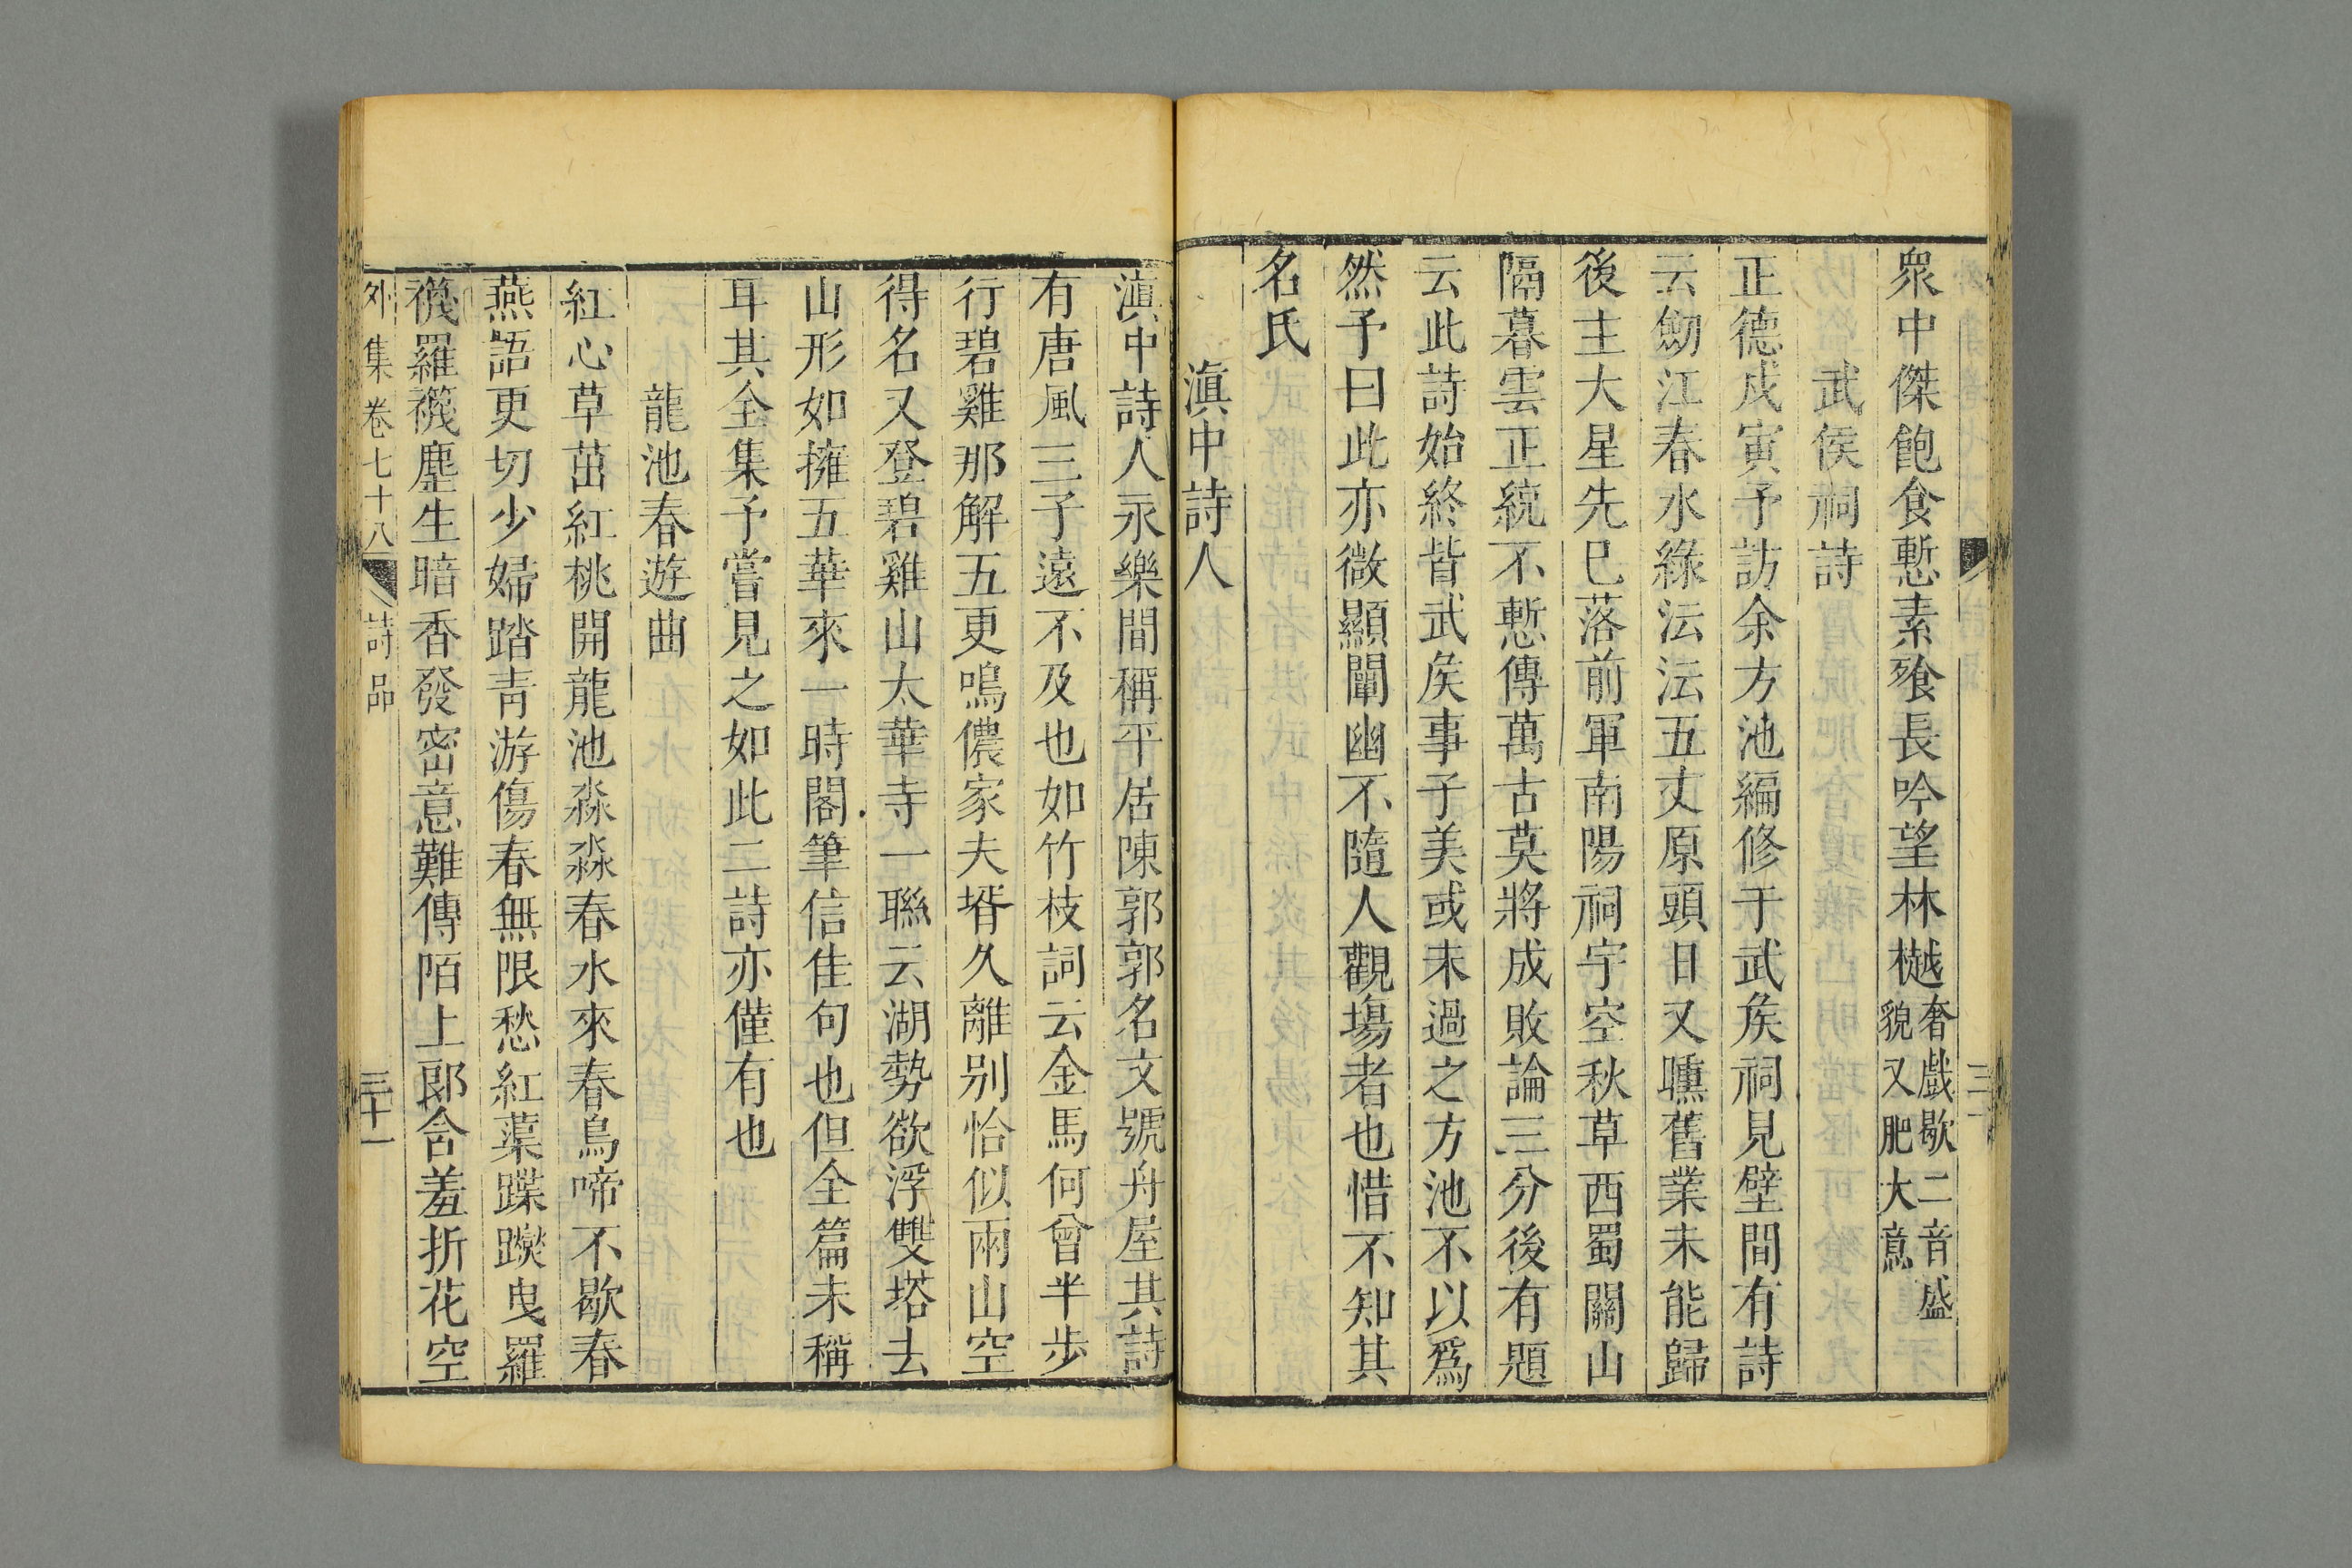 衆中傑飽食慙素飱長吟望林樾奢戲歇二音盛貌又肥大意
武侯祠詩
正德戍寅予訪余方池編修于武矦祠見壁間有詩
云劒江春水綠沄沄五丈原頭日又曛舊業未能歸
後主大星先已落前軍南陽祠宇空秋草西蜀關山
隔暮雲正統不慙傳萬古莫將成敗論三分後有題
云此詩始終皆武矦事子美或未過之方池不以爲
然予曰此亦微顯闡幽不隨人觀塲者也惜不知其
名氏
滇中詩人
滇中詩人永樂間稱平居陳郭郭名文號舟屋其詩
有唐風三子遠不及也如竹枝詞云金馬何曾半步
行碧雞那解五更鳴儂家夫壻久離别恰似兩山空
得名又登碧雞山太華寺一聯云湖勢欲浮雙塔去
山形如擁五華來一時閣筆信佳句也但全篇未稱
耳其全集予嘗見之如此二詩亦僅有也
龍池春遊曲
紅心草茁紅桃開龍池淼淼春水來春鳥啼不歇春
燕語更切少婦踏青游傷春無限愁紅蕖蹀躞曳羅
襪羅襪塵生暗香發密意難傳陌上郎含羞折花空
外集卷七十八
詩品
三十一